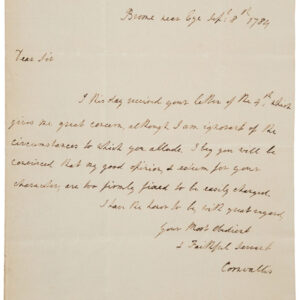 Brome near Eye Sept. 8th 1784
Dear Sir
I this day received your letter of the 4th. which
gives me great concern, although I am ignorant of the
circumstances to which you allude. I beg you will be
convinced that my good opinion, & esteem for your
character, are too firmly fixed to be easily changed.
I have the honor to be with great regard,
Your Most Obedient
& Faithful Servant
Cornwallis